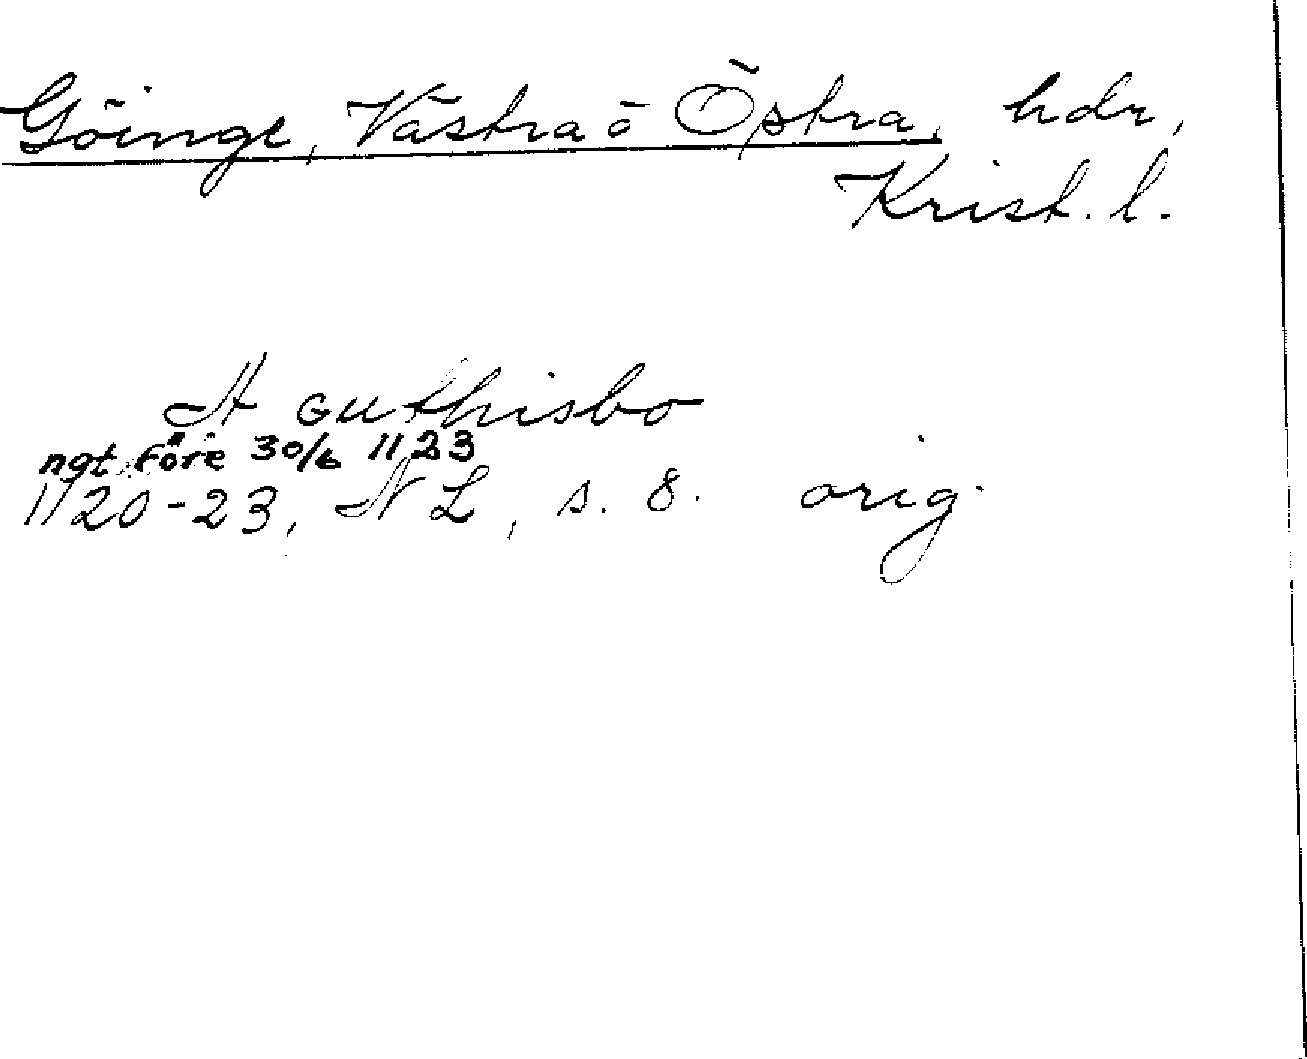 Göinge, Västra o Östra, hdr,
Krist. l.
A guthisbo
ngt före 30/6 1123
1120-23, NL, s. 8. orig.